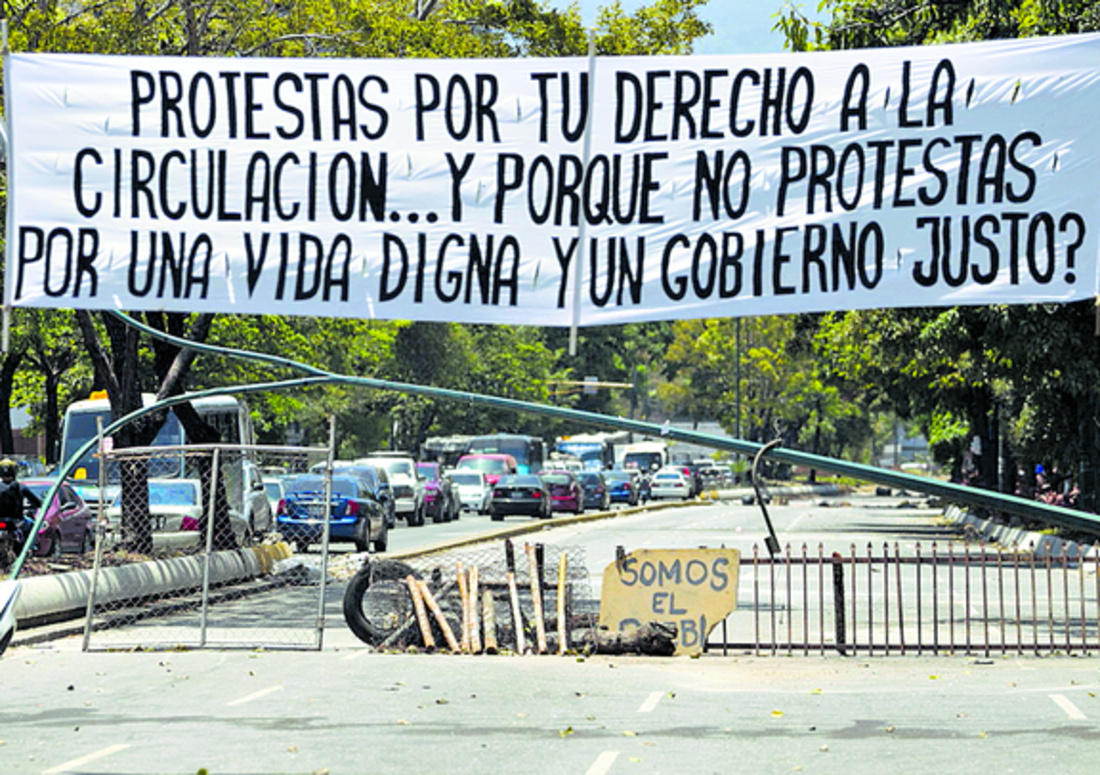 PROTESTAS POR TU DERECHO A LA
CIRCULACION... Y PORQUE NO PROTESTAS
POR UNA VIDA DIGNA Y UN GOBIERNO JUSTO?
SOMOS
EL